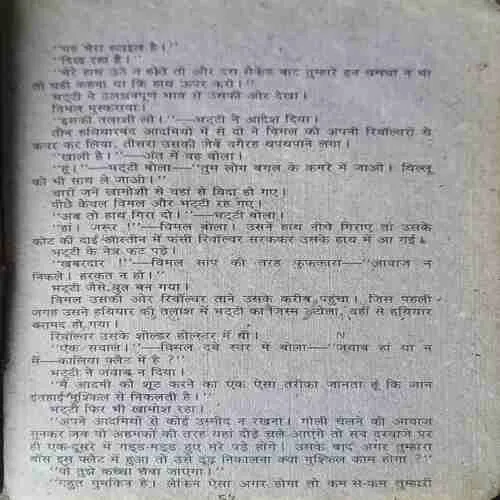 "यह मेरा स्टाइल है।"
"दिख रहा है।"
"मेरे हाथ उठे न होते तो और दस सेकेंड बाद तुम्हारे इन चमचों ने भी
तो यही कहना था कि हाथ ऊपर करो।"
भट्टी ने उलझनपूर्ण भाव से उसकी ओर देखा।
विमल मुस्कराया।
"इसकी तलाशी लो।"—भट्टी ने आदेश दिया।
तीन हथियारबंद आदमियों में से दो ने विमल को अपनी रिवॉल्वरों से
कवर कर लिया, तीसरा उसकी जेबें वगैरह थपथपाने लगा।
"खाली है।"—अंत में वह बोला।
"हूं।"—भट्टी बोला—"तुम लोग बगल के कमरे में जाओ। बिल्लू
को भी साथ ले जाओ।"
चारों जने खामोशी से वहां से विदा हो गए।
पीछे केवल विमल और भट्टी रह गए।
"अब तो हाथ गिरा दो।"—भट्टी बोला।
"हां। जरूर।"—विमल बोला। उसने हाथ नीचे गिराए तो उसके
कोट की दाईं आस्तीन में फंसी रिवॉल्वर सरककर उसके हाथ में आ गई।
भट्टी के नेत्र फट पड़े।
"खबरदार !"—विमल सांप की तरह फुफकारा—"आवाज न
निकले। हरकत न हो।"
भट्टी जैसे बुत बन गया।
विमल उसकी ओर रिवॉल्वर ताने उसके करीब पहुंचा। जिस पहली
जगह उसने हथियार की तलाश में भट्टी का जिस्म टटोला, वहीं से हथियार
बरामद हो गया।
रिवॉल्वर उसके शोल्डर होल्स्टर में थी।
"एक सवाल।"—विमल दबे स्वर में बोला—"जवाब हां या न
में—कालिया फ्लैट में है ?"
भट्टी ने जवाब न दिया।
"मैं आदमी को शूट करने का एक ऐसा तरीका जानता हूं कि जान
इंतहाई मुश्किल से निकलती है।"
भट्टी फिर भी खामोश रहा।
"अपने आदमियों से कोई उम्मीद न रखना। गोली चलने की आवाज
सुनकर जब वो अहमकों की तरह यहां दौड़े चले आएंगे तो सब दरवाजे पर
ही एक-दूसरे में गड्ड-मड्ड हुए मरे पड़े होंगे। उसके बाद अगर तुम्हारा
बॉस इस फ्लैट में हुआ तो उसे ढूंढ़ निकालना क्या मुश्किल काम होगा ?"
"वो तुझे कच्चा चबा जाएगा।"
"बहुत मुमकिन है। लेकिन ऐसा अगर होगा तो कम-से-कम तुम्हारी